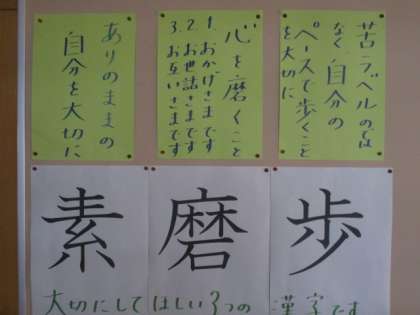 苦ラベルのでは
なく 自分の
ペースで歩くこと
を大切に
心を磨くこと
1.おかげさまです
2.お世話さまです
3.お互いさまです
ありのままの
自分を大切に
歩
磨
素
大切にしてほしい3つの漢字です